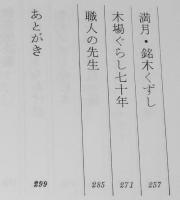 満月・銘木くずし 257
木場ぐらし七十年 271
職人の先生 285
あとがき 299